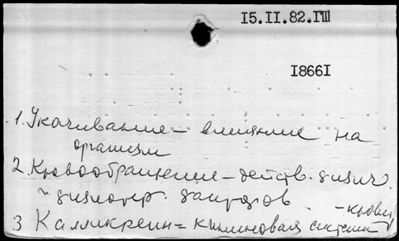 15.II.82.ГШ
I866I
1. Укачивание – влияние на
организм
2. Кровообращение – действ. физич.
и физиотер. факторов
– кровь
3 Калликреин = кининовая система